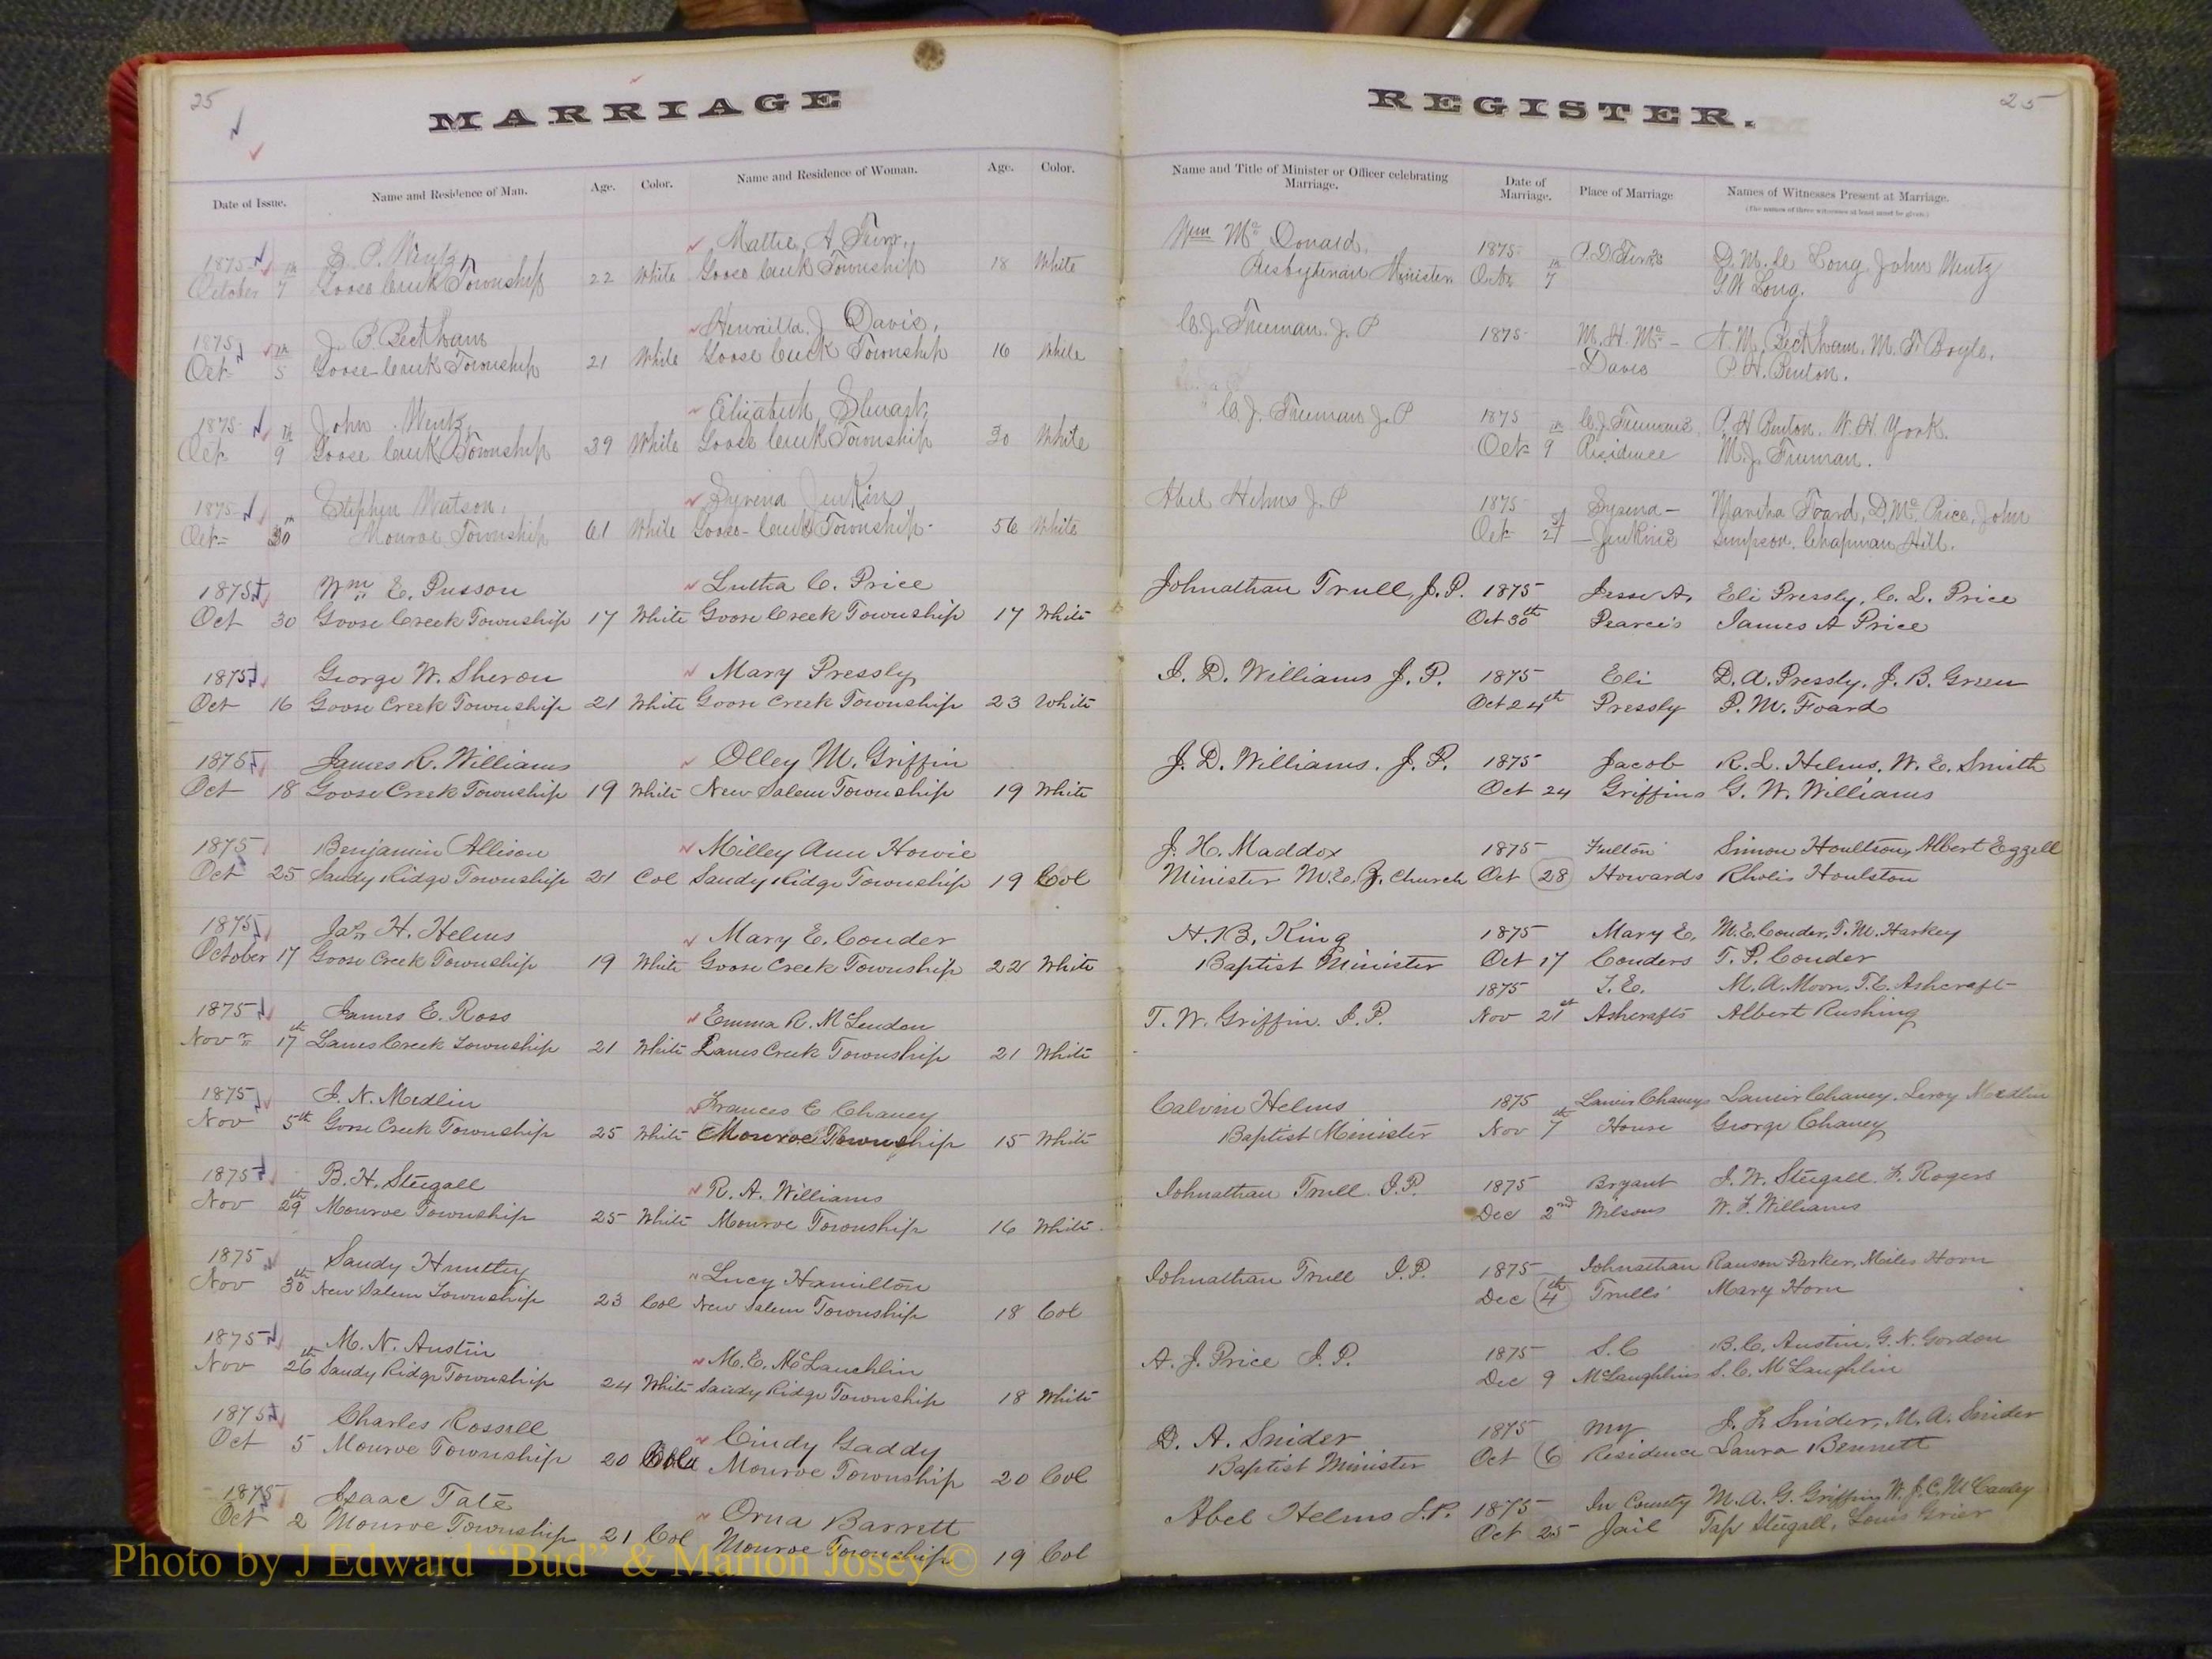 25
25
MARRIAGE
REGISTER.
Date of Issue. Name and Residence of Man. Age. Color. Name and Residence of Woman. Age. Color.
Name and Title of Minister or Officer celebrating Marriage. Date of Marriage. Place of Marriage Names of Witnesses Present at Marriage.
(The names of three witnesses at least must be given)
1875 E. P. Wentz Mattie A 1875 D. M. Long John Wentz
October 7th Goose Creek Township 22 White Goose Creek Township 18 White Wm Mc Donald Presbyterian Minister Oct 7th G. W Long.
1875 J. P. Beckham Henrietta J Davis, C. J. Freeman. J. P 1875 M. H. Mc- N. M. Beckham, M. F Boyle,
Oct 5th Goose Creek Township 21 White Goose Creek Township 16 White -Davis P. H. Benton.
1875 John Wentz, Elizabeth C. J. Freeman J. P 1875 C. J. Freemans P. H Benton. W. H. York.
Oct 9th Goose Creek Township 39 White Goose Creek Township 30 White Oct 9th Residence M. J. Freeman.
1875 Stephen Watson, Syrena Jenkins Abel Helms J. P 1875 Syrena- Martha Foard, D. Mc Price, John
Oct 30th Monroe Township 61 White Goose-Creek Township 56 White Oct -Jenkins Simpson, Chapman Hill.
1875 Wm E. Pusson Lutha C. Price Johnathan Trull, J. P. 1875 Jesse A, Eli Pressly, C. L. Price
Oct 30 Goose Creek Township 17 White Goose Creek Township 17 White Oct 30th Pearce's James A Price
1875 George W. Sheron Mary Pressly J. D. Williams J. P. 1875 Eli D. A. Pressly, J. B. Green
Oct 16 Goose Creek Township 21 White Goose Creek Township 23 White Oct 24th Pressly P. M. Foard
1875 James R. Williams Olley M. Griffin J. D. Williams. J. P. 1875 Jacob R. L. Helms, W. E. Smith
Oct 18 Goose Creek Township 19 White New Salem Township 19 White Oct 24 Griffins G. W. Williams
1875 Benjamin Allison Milley Ann Howie J. H. Maddox 1875 Fulton Simon Houlston, Albert Ezzell
Oct 25 Sandy Ridge Township 21 Col Sandy Ridge Township 19 Col Minister M. E. Z. Church Oct 28 Howards Rholis Houlston
1875 Jas H. Helms Mary E. Conder H. B. King 1875 Mary E. M. E. Conder, T. M. Harkey
October 17 Goose Creek Township 19 White Goose Creek Township 22 White Baptist Minister Oct 17 Conders T. P. Conder
1875 James E. Ross Emma R. McLendon T. W. Griffin. J. P. 1875 T. E. M. A. Moon, T. E. Ashcraft
Nov 17th Lanes Creek Township 21 White Lanes Creek Township 21 White Nov 21st Ashcrafts Albert Rushing
1875 J. N. Medlin Frances E Chaney Calvin Helms 1875 Chaneys Chaney, Leroy Medlin
Nov 5th Goose Creek Township 25 White Monroe Township 15 White Baptist Minister Nov 7th House George Chaney
1875 B. H. Stegall R. A. Williams Johnathan Trull. J. P. 1875 Bryant J. W. Stegall. F. Rogers
Nov 29th Monroe Township 25 White Monroe Township 16 White Dec 2nd Wilsons W. F. Williams
1875 Sandy Huntley Lucy Hamilton Johnathan Trull J. P. 1875 Johnathan Ranson Parker, Miles Horn
Nov 30th New Salem Township 23 Col New Salem Township 18 Col Dec 4th Trulls' Mary Horn
1875 M. N. Austin M. E. McLauchlin A. J. Price J. P. 1875 S. C B. C. Austin, G. N. Gordon
Nov 26th Sandy Ridge Township 24 White Sandy Ridge Township 18 White Dec 9 McLaughlins S. C. McLaughlin
1875 Charles Rossell Cindy Gaddy D. A. Snider 1875 My J. F. Snider, M. A. Snider
Oct 5 Monroe Township 20 Col Monroe Township 20 Col Baptist Minister Oct 6 Residence Laura Bennett
1875 Isaac Tate Orna Barrett Abel Helms J. P. 1875 In County M. A. G. Griffin, W. J. C. McCauley
Oct 2 Monroe Township 21 Col Monroe Township 19 Col Oct 25 Jail Stegall, Louis Grier
Photo by J Edward “Bud” & Marion Josey ©